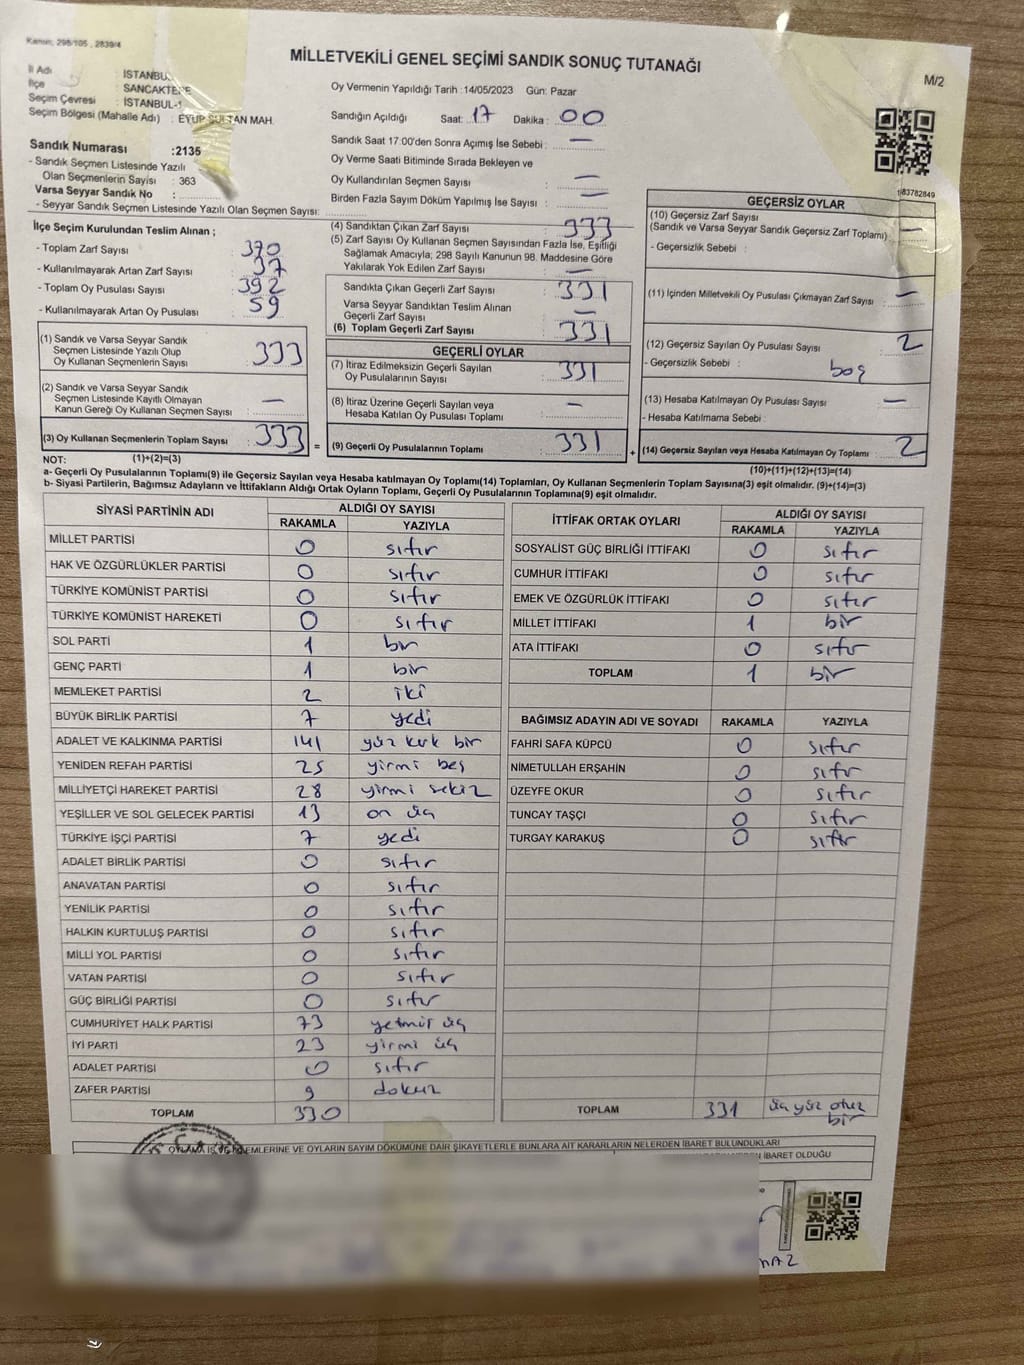 Kanun; 298/105 , 2839/4
MİLLETVEKİLİ GENEL SEÇİMİ SANDIK SONUÇ TUTANAĞI
M/2
İl Adı : İSTANBU
İlçe : SANCAKTEPE
Seçim Çevresi : İSTANBUL-1
Seçim Bölgesi (Mahalle Adı) : EYÜP SULTAN MAH.
Oy Vermenin Yapıldığı Tarih :14/05/2023 Gün: Pazar
Sandığın Açıldığı Saat: 17 Dakika : 00
Sandık Saat 17:00'den Sonra Açımış İse Sebebi : —
Oy Verme Saati Bitiminde Sırada Bekleyen ve
Oy Kullandırılan Seçmen Sayısı : —
Birden Fazla Sayım Döküm Yapılmış İse Sayısı : —
Sandık Numarası :2135
- Sandık Seçmen Listesinde Yazılı
Olan Seçmenlerin Sayısı : 363
Varsa Seyyar Sandık No :
- Seyyar Sandık Seçmen Listesinde Yazılı Olan Seçmen Sayısı:
İlçe Seçim Kurulundan Teslim Alınan ;
- Toplam Zarf Sayısı : 370
- Kullanılmayarak Artan Zarf Sayısı : 37
- Toplam Oy Pusulası Sayısı : 392
- Kullanılmayarak Artan Oy Pusulası : 59
(1) Sandık ve Varsa Seyyar Sandık
Seçmen Listesinde Yazılı Olup
Oy Kullanan Seçmenlerin Sayısı : 333
(2) Sandık ve Varsa Seyyar Sandık
Seçmen Listesinde Kayıtlı Olmayan
Kanun Gereği Oy Kullanan Seçmen Sayısı : —
(3) Oy Kullanan Seçmenlerin Toplam Sayısı : 333
(4) Sandıktan Çıkan Zarf Sayısı : 333
(5) Zarf Sayısı Oy Kullanan Seçmen Sayısından Fazla İse, Eşitliği
Sağlamak Amacıyla; 298 Sayılı Kanunun 98. Maddesine Göre
Yakılarak Yok Edilen Zarf Sayısı : —
Sandıkta Çıkan Geçerli Zarf Sayısı : 331
Varsa Seyyar Sandıktan Teslim Alınan
Geçerli Zarf Sayısı : —
(6) Toplam Geçerli Zarf Sayısı : 331
GEÇERLİ OYLAR
(7) İtiraz Edilmeksizin Geçerli Sayılan
Oy Pusulalarının Sayısı : 331
(8) İtiraz Üzerine Geçerli Sayılan veya
Hesaba Katılan Oy Pusulası Toplamı : —
= (9) Geçerli Oy Pusulalarının Toplamı : 331
183782849
GEÇERSİZ OYLAR
(10) Geçersiz Zarf Sayısı
(Sandık ve Varsa Seyyar Sandık Geçersiz Zarf Toplamı) : —
- Geçersizlik Sebebi :
(11) İçinden Milletvekili Oy Pusulası Çıkmayan Zarf Sayısı : —
(12) Geçersiz Sayılan Oy Pusulası Sayısı : 2
- Geçersizlik Sebebi : boş
(13) Hesaba Katılmayan Oy Pusulası Sayısı : —
- Hesaba Katılmama Sebebi :
+ (14) Geçersiz Sayılan veya Hesaba Katılmayan Oy Toplamı : 2
NOT: (1)+(2)=(3) (10)+(11)+(12)+(13)=(14)
a- Geçerli Oy Pusulalarının Toplamı(9) ile Geçersiz Sayılan veya Hesaba katılmayan Oy Toplamı(14) Toplamları, Oy Kullanan Seçmenlerin Toplam Sayısına(3) eşit olmalıdır. (9)+(14)=(3)
b- Siyasi Partilerin, Bağımsız Adayların ve İttifakların Aldığı Ortak Oyların Toplamı, Geçerli Oy Pusulalarının Toplamına(9) eşit olmalıdır.
SİYASİ PARTİNİN ADI ALDIĞI OY SAYISI
RAKAMLA YAZIYLA
MİLLET PARTİSİ 0 sıfır
HAK VE ÖZGÜRLÜKLER PARTİSİ 0 sıfır
TÜRKİYE KOMÜNİST PARTİSİ 0 sıfır
TÜRKİYE KOMÜNİST HAREKETİ 0 sıfır
SOL PARTİ 1 bir
GENÇ PARTİ 1 bir
MEMLEKET PARTİSİ 2 iki
BÜYÜK BİRLİK PARTİSİ 7 yedi
ADALET VE KALKINMA PARTİSİ 141 yüz kırk bir
YENİDEN REFAH PARTİSİ 25 yirmi beş
MİLLİYETÇİ HAREKET PARTİSİ 28 yirmi sekiz
YEŞİLLER VE SOL GELECEK PARTİSİ 13 on üç
TÜRKİYE İŞÇİ PARTİSİ 7 yedi
ADALET BİRLİK PARTİSİ 0 sıfır
ANAVATAN PARTİSİ 0 sıfır
YENİLİK PARTİSİ 0 sıfır
HALKIN KURTULUŞ PARTİSİ 0 sıfır
MİLLİ YOL PARTİSİ 0 sıfır
VATAN PARTİSİ 0 sıfır
GÜÇ BİRLİĞİ PARTİSİ 0 sıfır
CUMHURİYET HALK PARTİSİ 73 yetmiş üç
İYİ PARTİ 23 yirmi üç
ADALET PARTİSİ 0 sıfır
ZAFER PARTİSİ 9 dokuz
TOPLAM 330
İTTİFAK ORTAK OYLARI ALDIĞI OY SAYISI
RAKAMLA YAZIYLA
SOSYALİST GÜÇ BİRLİĞİ İTTİFAKI 0 sıfır
CUMHUR İTTİFAKI 0 sıfır
EMEK VE ÖZGÜRLÜK İTTİFAKI 0 sıfır
MİLLET İTTİFAKI 1 bir
ATA İTTİFAKI 0 sıfır
TOPLAM 1 bir
BAĞIMSIZ ADAYIN ADI VE SOYADI RAKAMLA YAZIYLA
FAHRİ SAFA KÜPCÜ 0 sıfır
NİMETULLAH ERŞAHİN 0 sıfır
ÜZEYFE OKUR 0 sıfır
TUNCAY TAŞÇI 0 sıfır
TURGAY KARAKUŞ 0 sıfır
TOPLAM 331 üç yüz otuz
bir
EMLERİNE VE OYLARIN SAYIM DÖKÜMÜNE DAİR ŞİKAYETLERLE BUNLARA AİT KARARLARIN NELERDEN İBARET BULUNDUKLARI
İBARET OLDUĞU